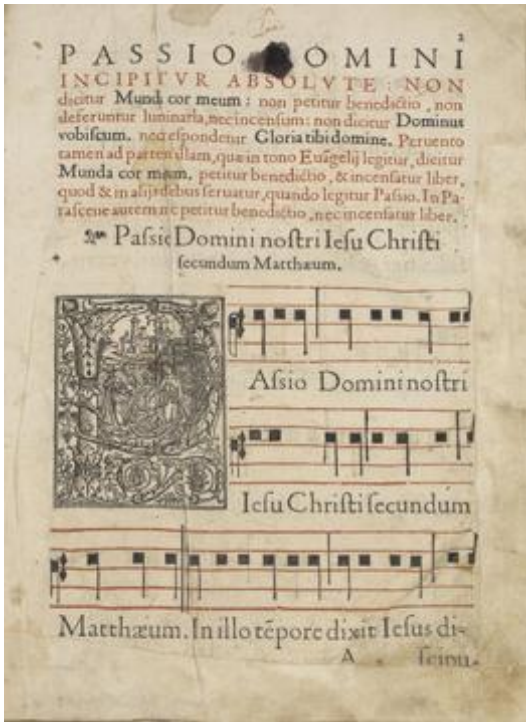 2
PASSIO DOMINI
INCIPITVR ABSOLVTE: NON
dicitur Mundi cor meum: non petitur benedictio, non
deferuntur luminaria, nec incensum: non dicitur Dominus
vobiscum. nec respondetur Gloria tibi domine. Peruento
tamen ad partem illam, quæ in tono Euãgelij legitur, dicitur
Munda cor meum. petitur benedictio, & incensatur liber.
quod & in alijs diebus seruatur, quando legitur Passio. In Pa-
rasceue autem nec petitur benedictio, nec incensatur liber.
Passio Domini nostri Iesu Christi
secundum Matthæum.
P
Assio Domini nostri
Iesu Christi secundum
Matthæum. In illo tẽpore dixit Iesus di-
A scipu-